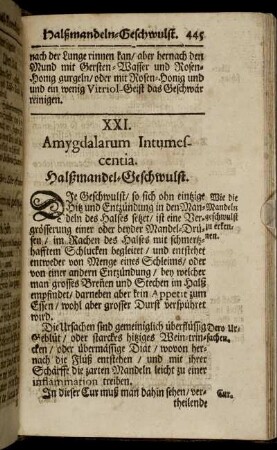 Halßmandeln-Geschwulst. 445
nach der Lunge rinnen kan/ aber hernach den
Mund mit Gersten-Wasser und Rosen-
Honig gurgeln/ oder mit Rosen-Honig und
und ein wenig Vitriol-Geist das Geschwär
reinigen.
XXI.
Amygdalarum Intumes-
centia.
Halßmandel-Geschwulst.
DIe Geschwulst/ so sich ohn eintzige
Hitz und Entzündung in den Man-
deln des Halses setzet/ ist eine Ver-
grösserung einer oder beyder Mandel-Drü-
sen/ im Rachen des Halses mit schmertz-
hafftem Schlucken begleitet/ und entstehet
entweder von Menge eines Schleims/ oder
von einer andern Entzündung/ bey welcher
man grosses Breñen und Stechen im Halß
empfindet/ darneben aber kein Appetit zum
Essen/ wohl aber grosser Durst verspühret
wird.
Wie die
Mandeln
geschwulst
zu erken-
nen.
Die Ursachen sind gemeiniglich überflüssig
Geblüt/ oder starckes hitziges Wein-trin-
cken/ oder übermässige Diät/ wovon her-
nach die Flüß entstehen/ und mit ihrer
Schärffe die zarten Mandeln leicht zu einer
inflammation treiben.
Dero Ur-
sachen.
In dieser Cur muß man dahin sehen/ ver-
Cur.
theilende